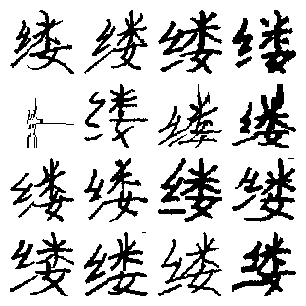 缕缕缕缕
缕缕缕
缕缕缕缕
缕缕缕缕